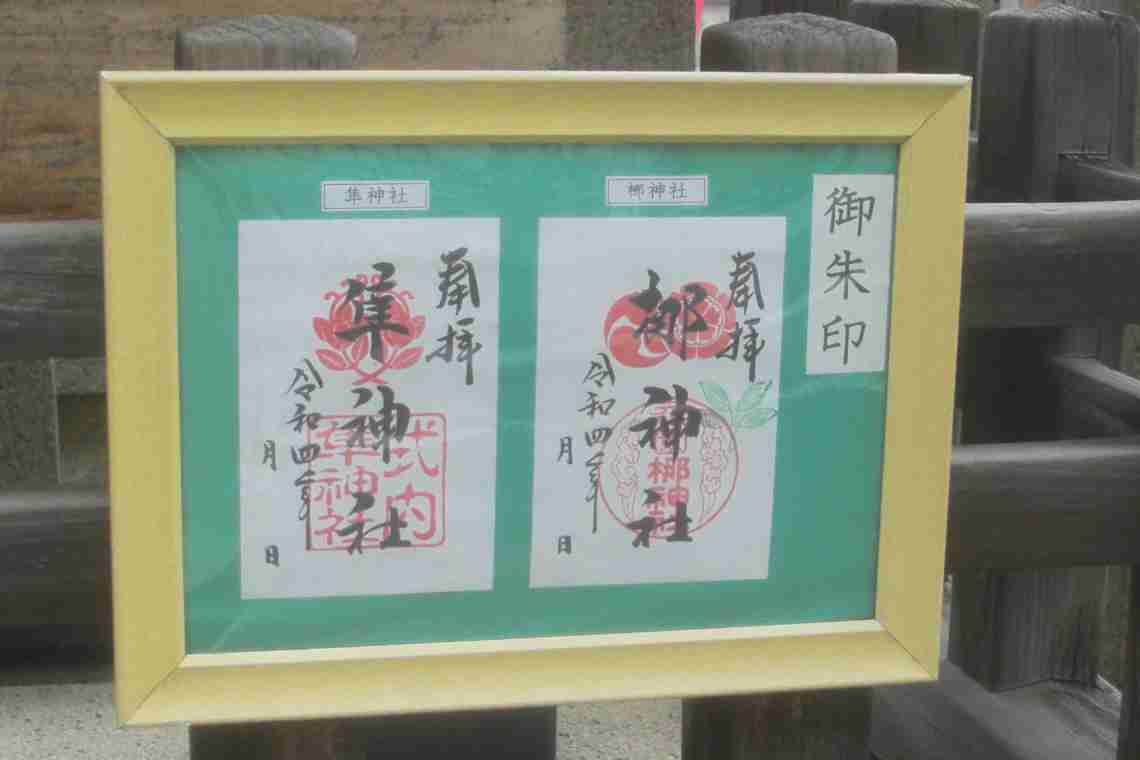 御朱印
梛神社
奉拝
梛神社
令和四年
月
日
梛神社
隼神社
奉拝
隼神社
令和四年
月
日
式内
隼神社